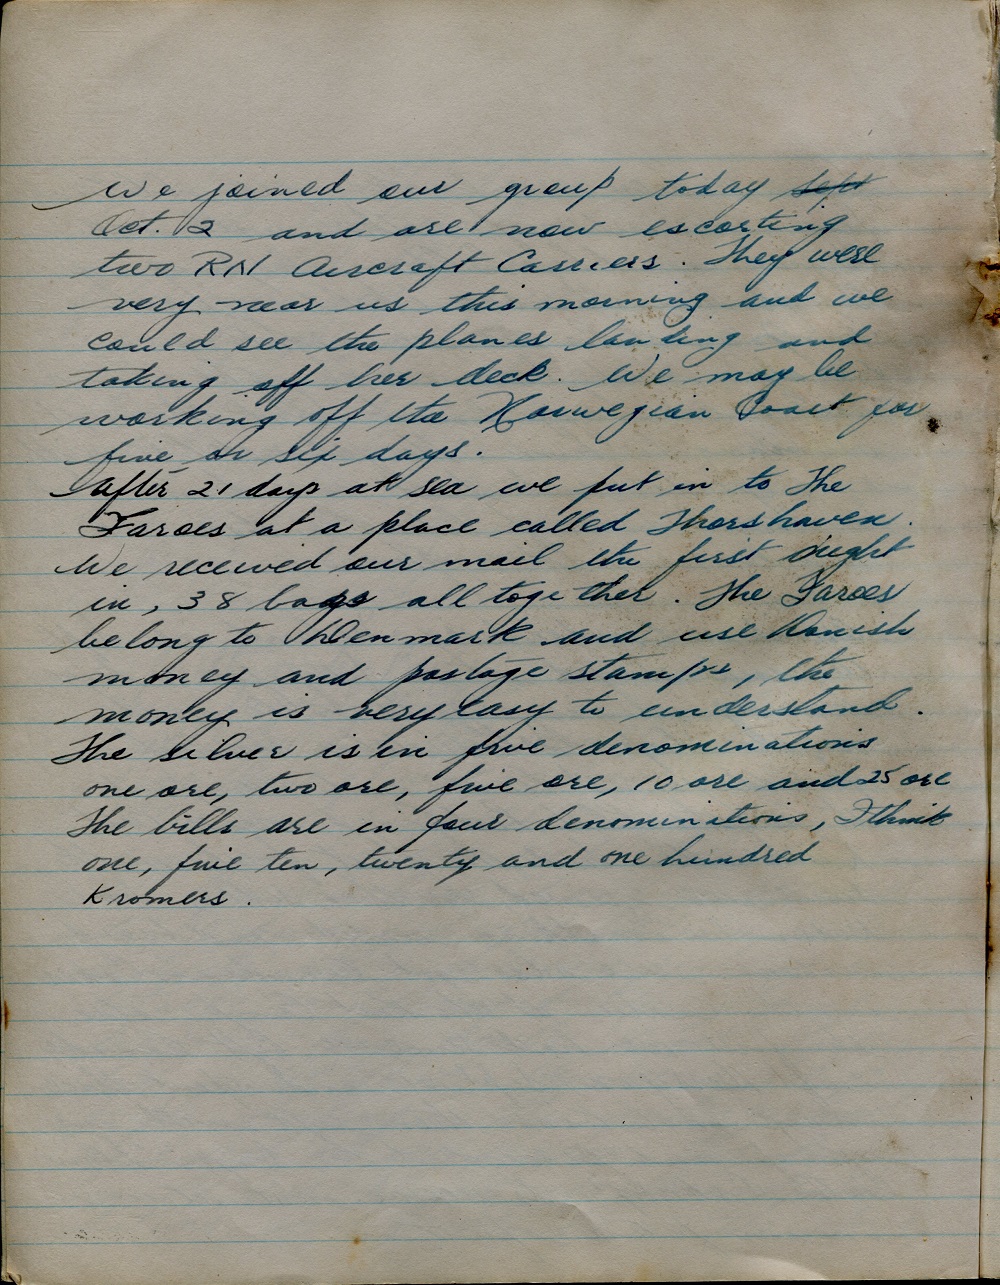 We joined our group today Sept
Oct. 2 and are now escorting
two RN Aircraft Carriers. They were
very near us this morning and we
could see the planes landing and
taking off her deck. We may be
working off the Norwegian Coast for
five or six days.
After 21 days at sea we put in to The
Faroes at a place called Thorshaven.
We received our mail the first night
in, 38 bags all together. The Faroes
belong to Denmark and use Danish
money and postage stamps, the
money is very easy to understand.
The silver is in five denominations
one ore, two ore, five ore, 10 ore and 25 ore
The bills are in four denominations, I think
one, five ten, twenty and one hundred
Kromers.